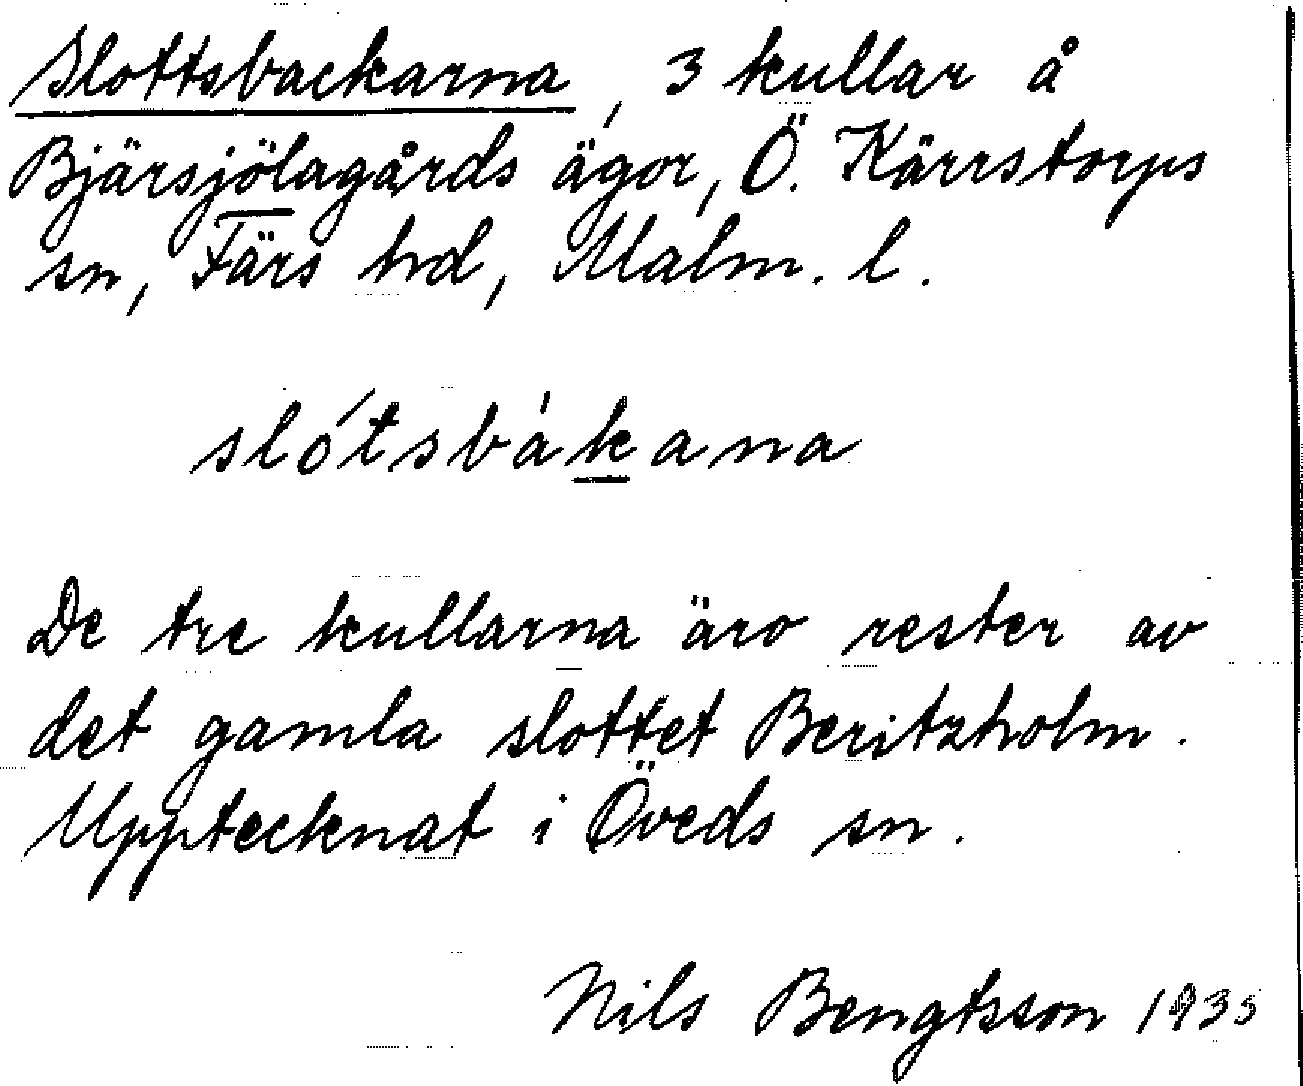 Slottsbackarna, 3 kullar å
Bjärsjölagårds ägor, Ö. Kärrstorps
sn, Färs hd, Malm. l.
slótsbákana
De tre kullarna äro rester av
det gamla slottet Beritzholm.
Upptecknat i Öveds sn.
Nils Bengtsson 1935